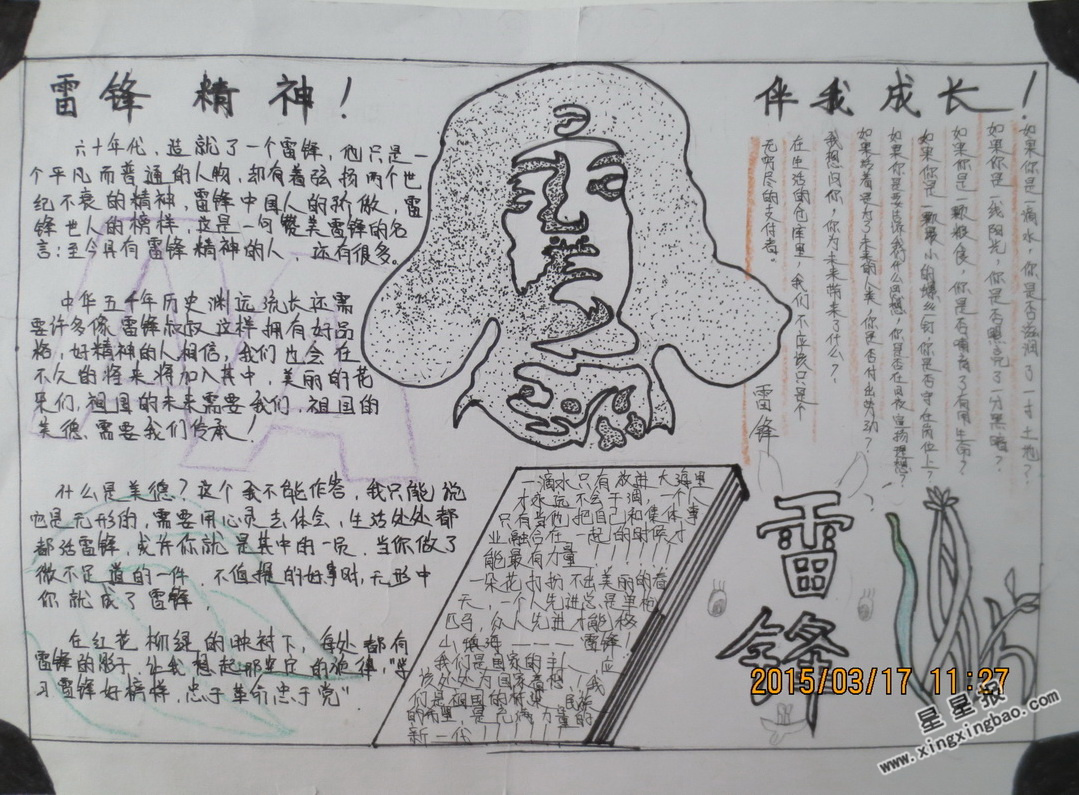 雷锋精神！
伴我成长！
六十年代，造就了一个雷锋，他只是一
个平凡而普通的人物，却有着弘扬两个世
纪不衰的精神，雷锋中国人的骄傲，雷
锋世人的榜样，这是一句赞美雷锋的名
言：至今具有雷锋精神的人 还有很多。
中华五千年历史渊远流长还需
要许多像雷锋叔叔这样拥有好品
格，好精神的人相信，我们也会在
不久的将来将加入其中，美丽的花
朵们，祖国的未来需要我们，祖国的
美德、需要我们传承！
什么是美德？这个我不能作答，我只能说
它是无形的，需要用心灵去体会，生活处处都
都活雷锋，或许你就是其中的一员，当你做了
微不足道的一件，不值提的好事时，无形中
你就成了雷锋，
在红花柳绿的映衬下，每处都有
雷锋的影子，让我想起那的旋律，"学
习雷锋好榜样，忠于革命忠于党"
如果你是一滴水，你是否滋润了一寸土地？
如果你是一线阳光，你是否照亮了一分黑暗？
如果你是一颗粮食，你是否哺育了有用生命？
如果你是一颗最小的螺丝钉你是否守在岗位上？
如果你是要告诉我们什么思想，你是否在日夜宣扬理想？
如果你活着是为了未来的人类，你是否付出劳动？
我想问你，你为未来带来了什么？
在生活的仓库里，我们不应该只是个
无穷尽的支付者。
雷锋
一滴水只有放进大海里
才永远不会干涸，一个人
只有当他把自己和集体事
业融合在一起的时候才
能最有力量！！！！！！
一朵花打扮不出美丽的春
天，一个人先进总是单枪
匹马，众人先进才能移
山填海————雷锋！
我们是国家的主人，应
该处处为国家着想！我
们是祖国的 民族
的希望，是充满力量的
新一代！！！！！！
雷
锋
2015/03/17 11:27
星星报
www.xingxingbao.com